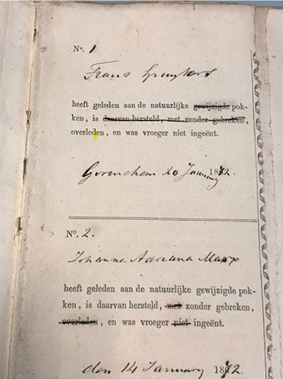 No. 1
Frans
heeft geleden aan de natuurlijke gewijzigde pok-
ken, is daarvan hersteld, met zonder gebreken,
overleden, en was vroeger niet ingeënt.
Gorinchem 20 January 1872.
No. 2.
Johanna Adriana Marx
heeft geleden aan de natuurlijke gewijzigde pok-
ken, is daarvan hersteld, met zonder gebreken,
overleden, en was vroeger niet ingeënt.
den 14 January 1872